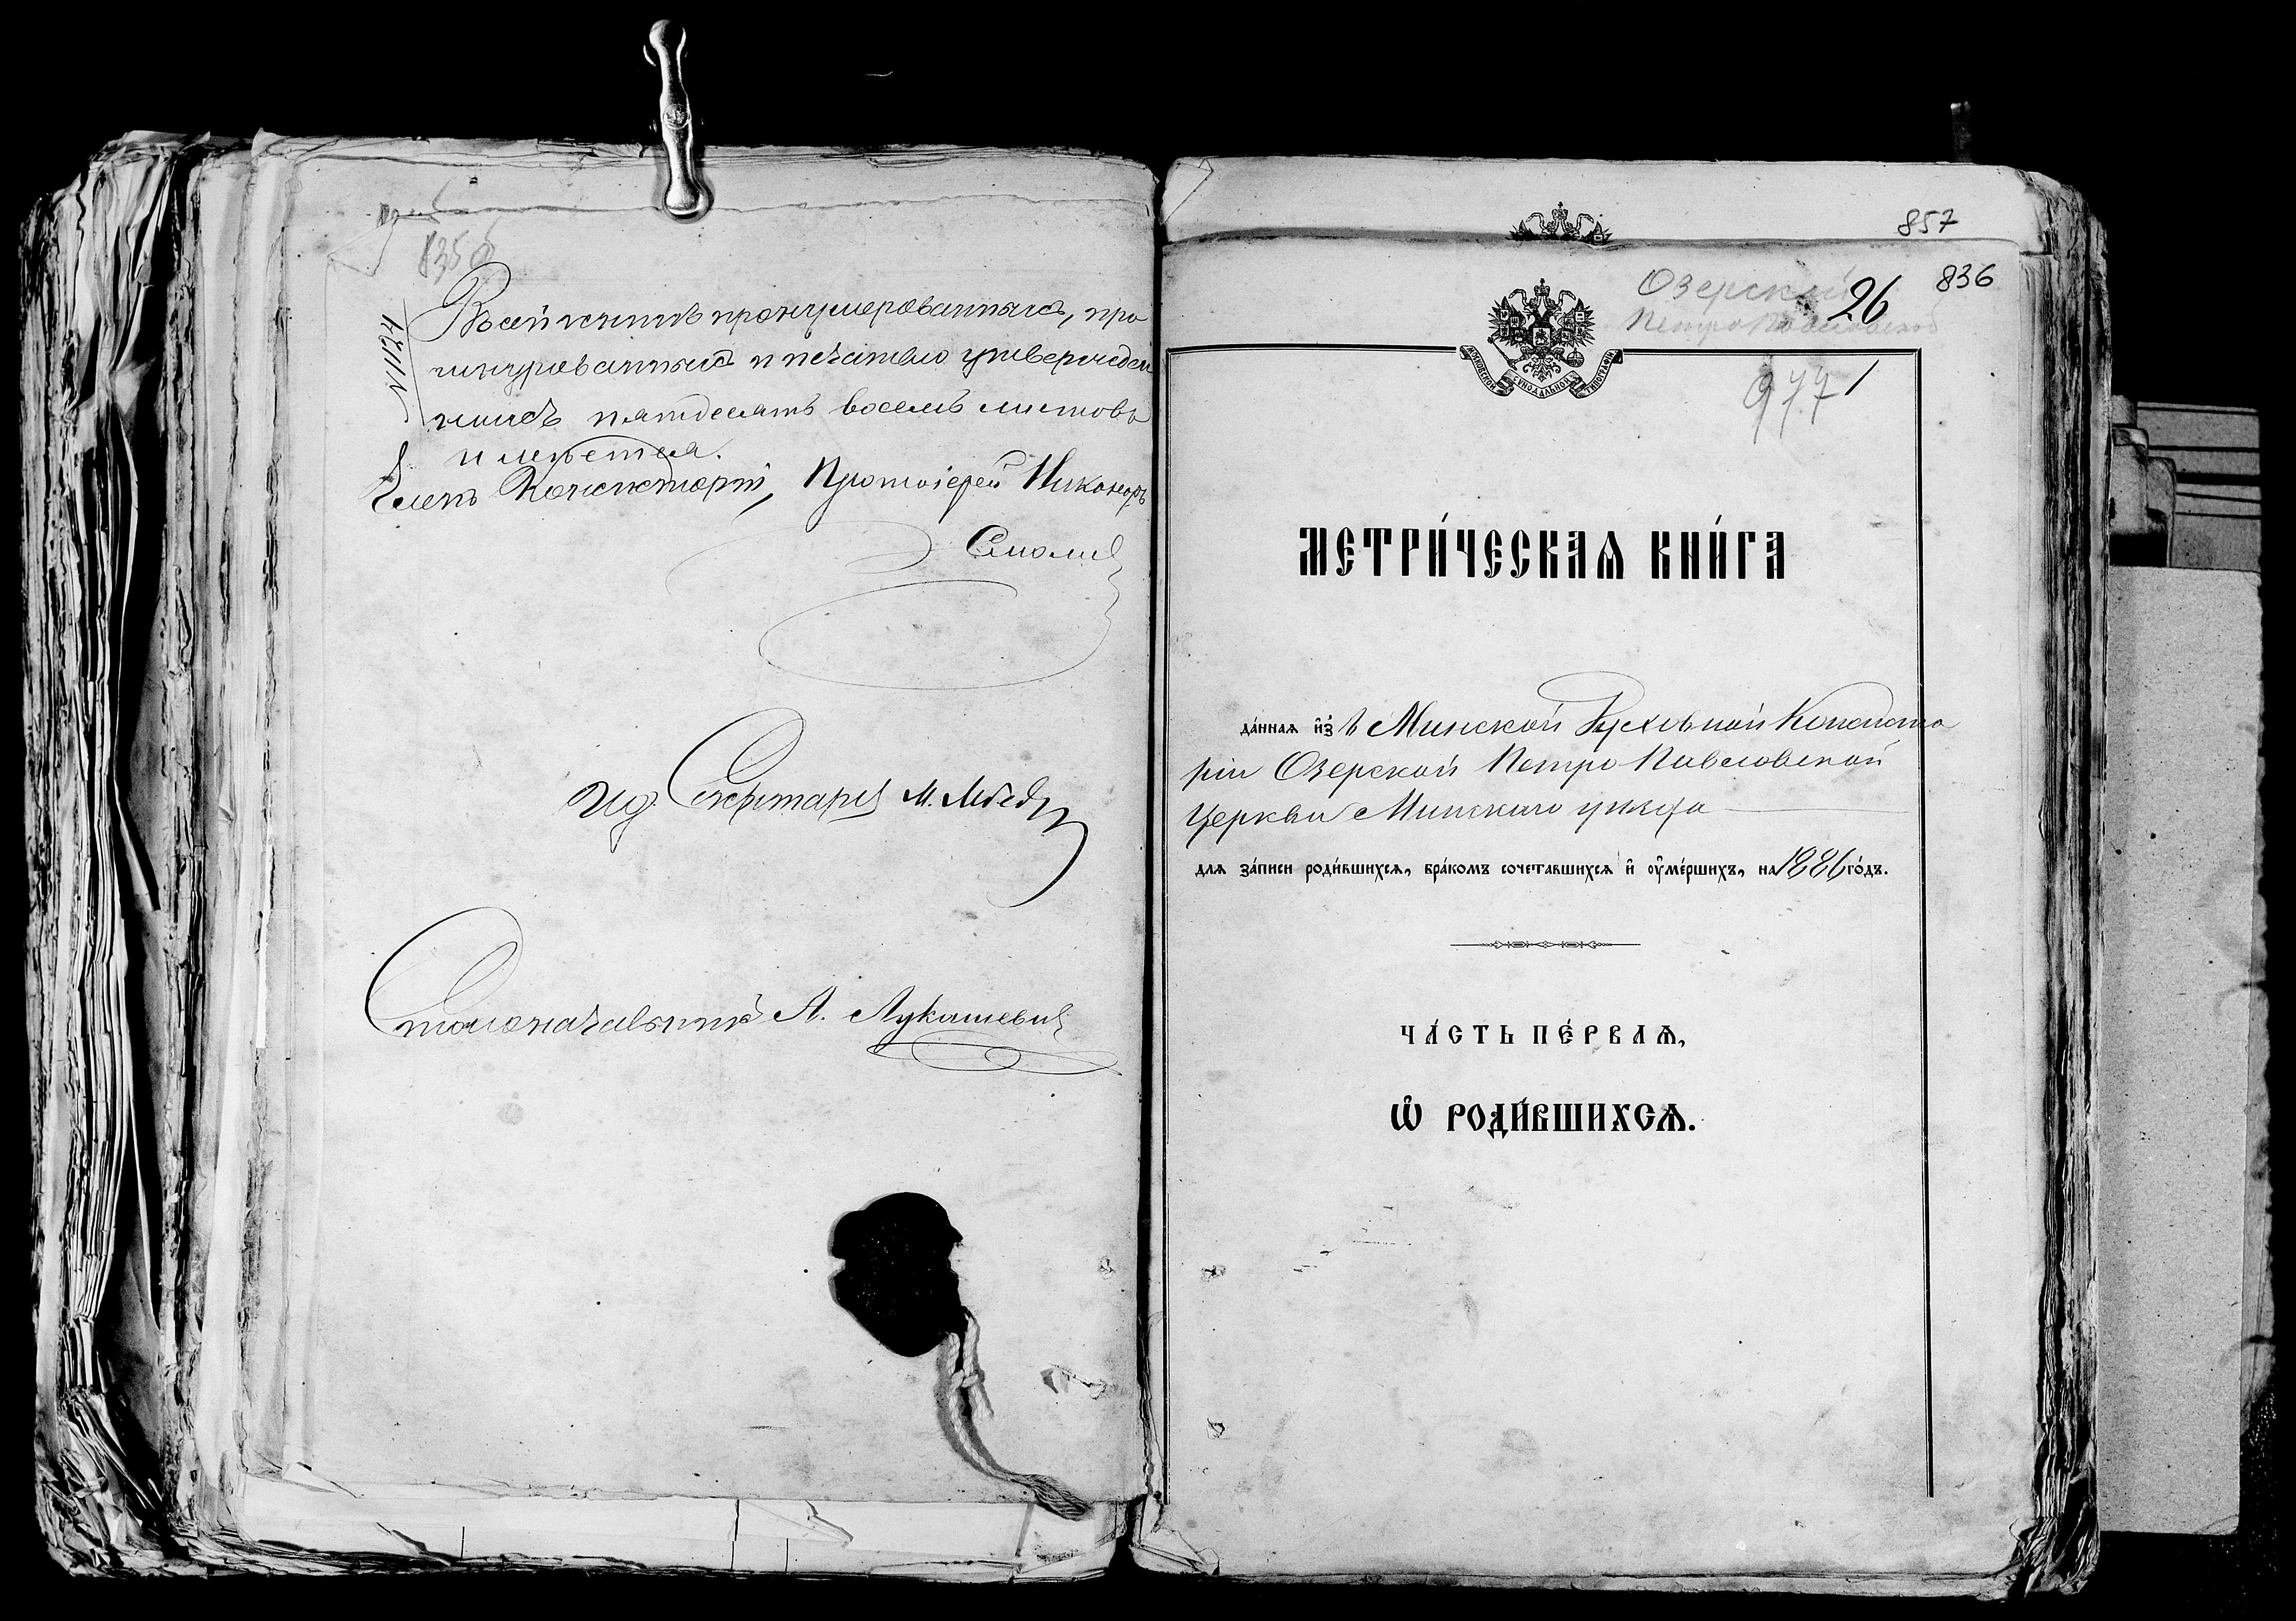 835об
N 1124
Въ сей книгѣ пронумерованныхъ, про
шнурованныхъ и печатью утвержден
ныхъ пятдесятъ восемь листовъ
имѣется.
Членъ Консисторіи, Протоіерей Никаноръ
Смоличъ
Ид. Секретаря М.
Столоначальникъ А. Лукашевичъ
857
Озерской 26 836
Петро Павловской
МОСКОВСКОЙ СѴНОДАЛЬНОЙ ТИПОГРАФІИ
977 1
МЕТРИ́ЧЕСКАѦ КНИ́ГА
да́ннаѧ и҆з̾ Минской Духовной Консисто
ріи Озерской Петро Павловской
церкви Минскаго уѣзда
длѧ за́писи роди́вшихсѧ, бра́комъ сочета́вшихсѧ и҆ ᲂу҆ме́ршихъ, на 1886 го́дъ.
ЧА́СТЬ ПЕ́РВАѦ,
Ѡ҆ РОДИ́ВШИХСѦ.